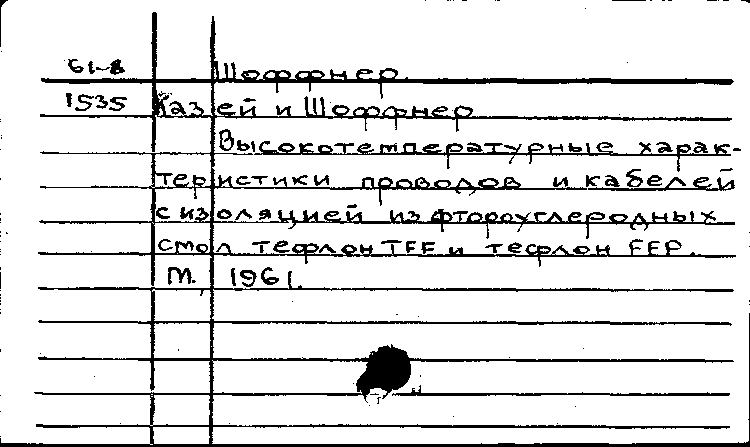 61-8 Шоффнер.
1535 Казей и Шоффнер
Высокотемпературные харак-
теристики проводов и кабелей
с изоляцией из фтороуглеродных
смол тефлон TFE и тефлон FEP.
М., 1961.